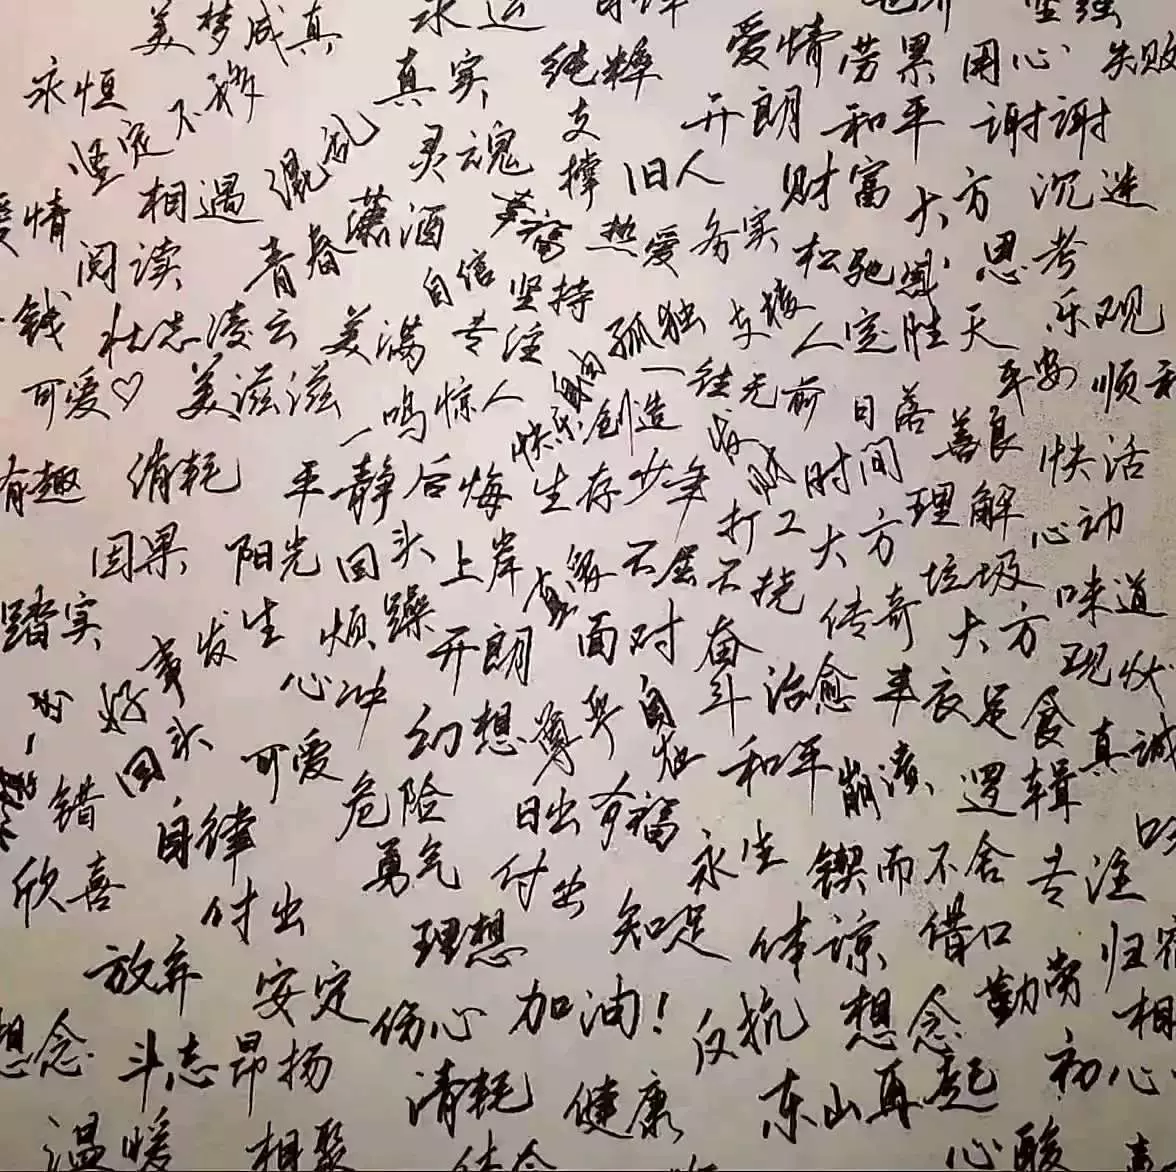 美梦成真 永远 自律 坚强
永恒 坚定不移 真实 纯粹 爱情 劳累 用心 失败
相遇 混乱 灵魂 支撑 旧人 开朗 和平 谢谢
爱情 阅读 青春 潇洒 热爱 务实 财富 大方 沉迷
自信 坚持 松弛感 思考
钱 壮志凌云 美满 专注 孤独 支撑 人定胜天 乐观
可爱♡ 美滋滋 一鸣惊人 快乐 自由 创造 一往无前 日落 平安 顺利
有趣 消耗 平静 后悔 生存 少年 发财 时间 善良 快活
因果 阳光 回头 上岸 真的 不屈不挠 打工 大方 理解 心动
踏实 好事发生 烦躁 开朗 面对 奋斗 传奇 垃圾 味道
回头 心冲 幻想 自由 治愈 丰衣足食 大方 现状
错 可爱 危险 日出 有福 和平 崩溃 逻辑 真诚
欣喜 自律 勇气 付出 永生 锲而不舍 专注
付出 理想 知足 体谅 借口 归宿
放弃 安定 伤心 加油! 反抗 想念 勤劳
想念 斗志昂扬 清耗 健康 东山再起 初心
温暖 相聚 心酸